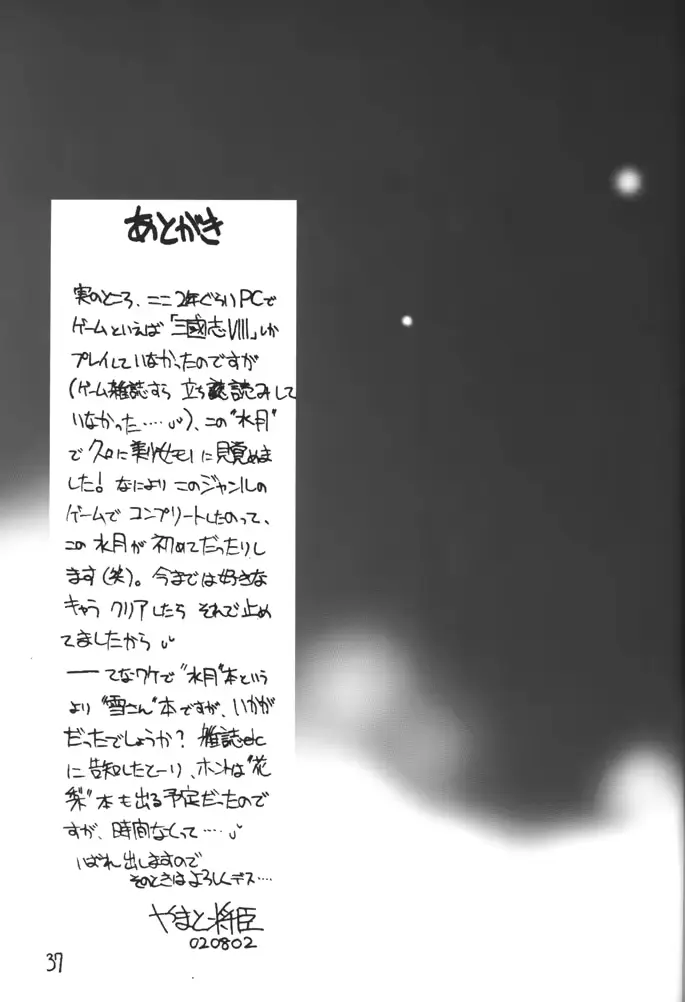 あとがき
実のところ、ここ2年ぐらいPCで
ゲームといえば「三國志VIII」しか
プレイしていなかったのですが
(ゲーム雑誌すら 立ち読みして
いなかった……)、この"水月"
で久々に美少女モノに目覚めま
した! なにより このジャンルの
ゲームで コンプリートしたのって、
この 水月が 初めてだったりし
ます(笑)。今までは好きな
キャラ クリアしたら それで止め
てましたから
――てなワケで"水月"本という
より"雪さん"本ですが、いかが
だったでしょうか? 雑誌etc
に告知したとーり、ホントは"花
梨"本も出る予定だったので
すが、時間なくって……
いずれ出しますので
そのときはよろしくデス……
やまと将臣
020802
37